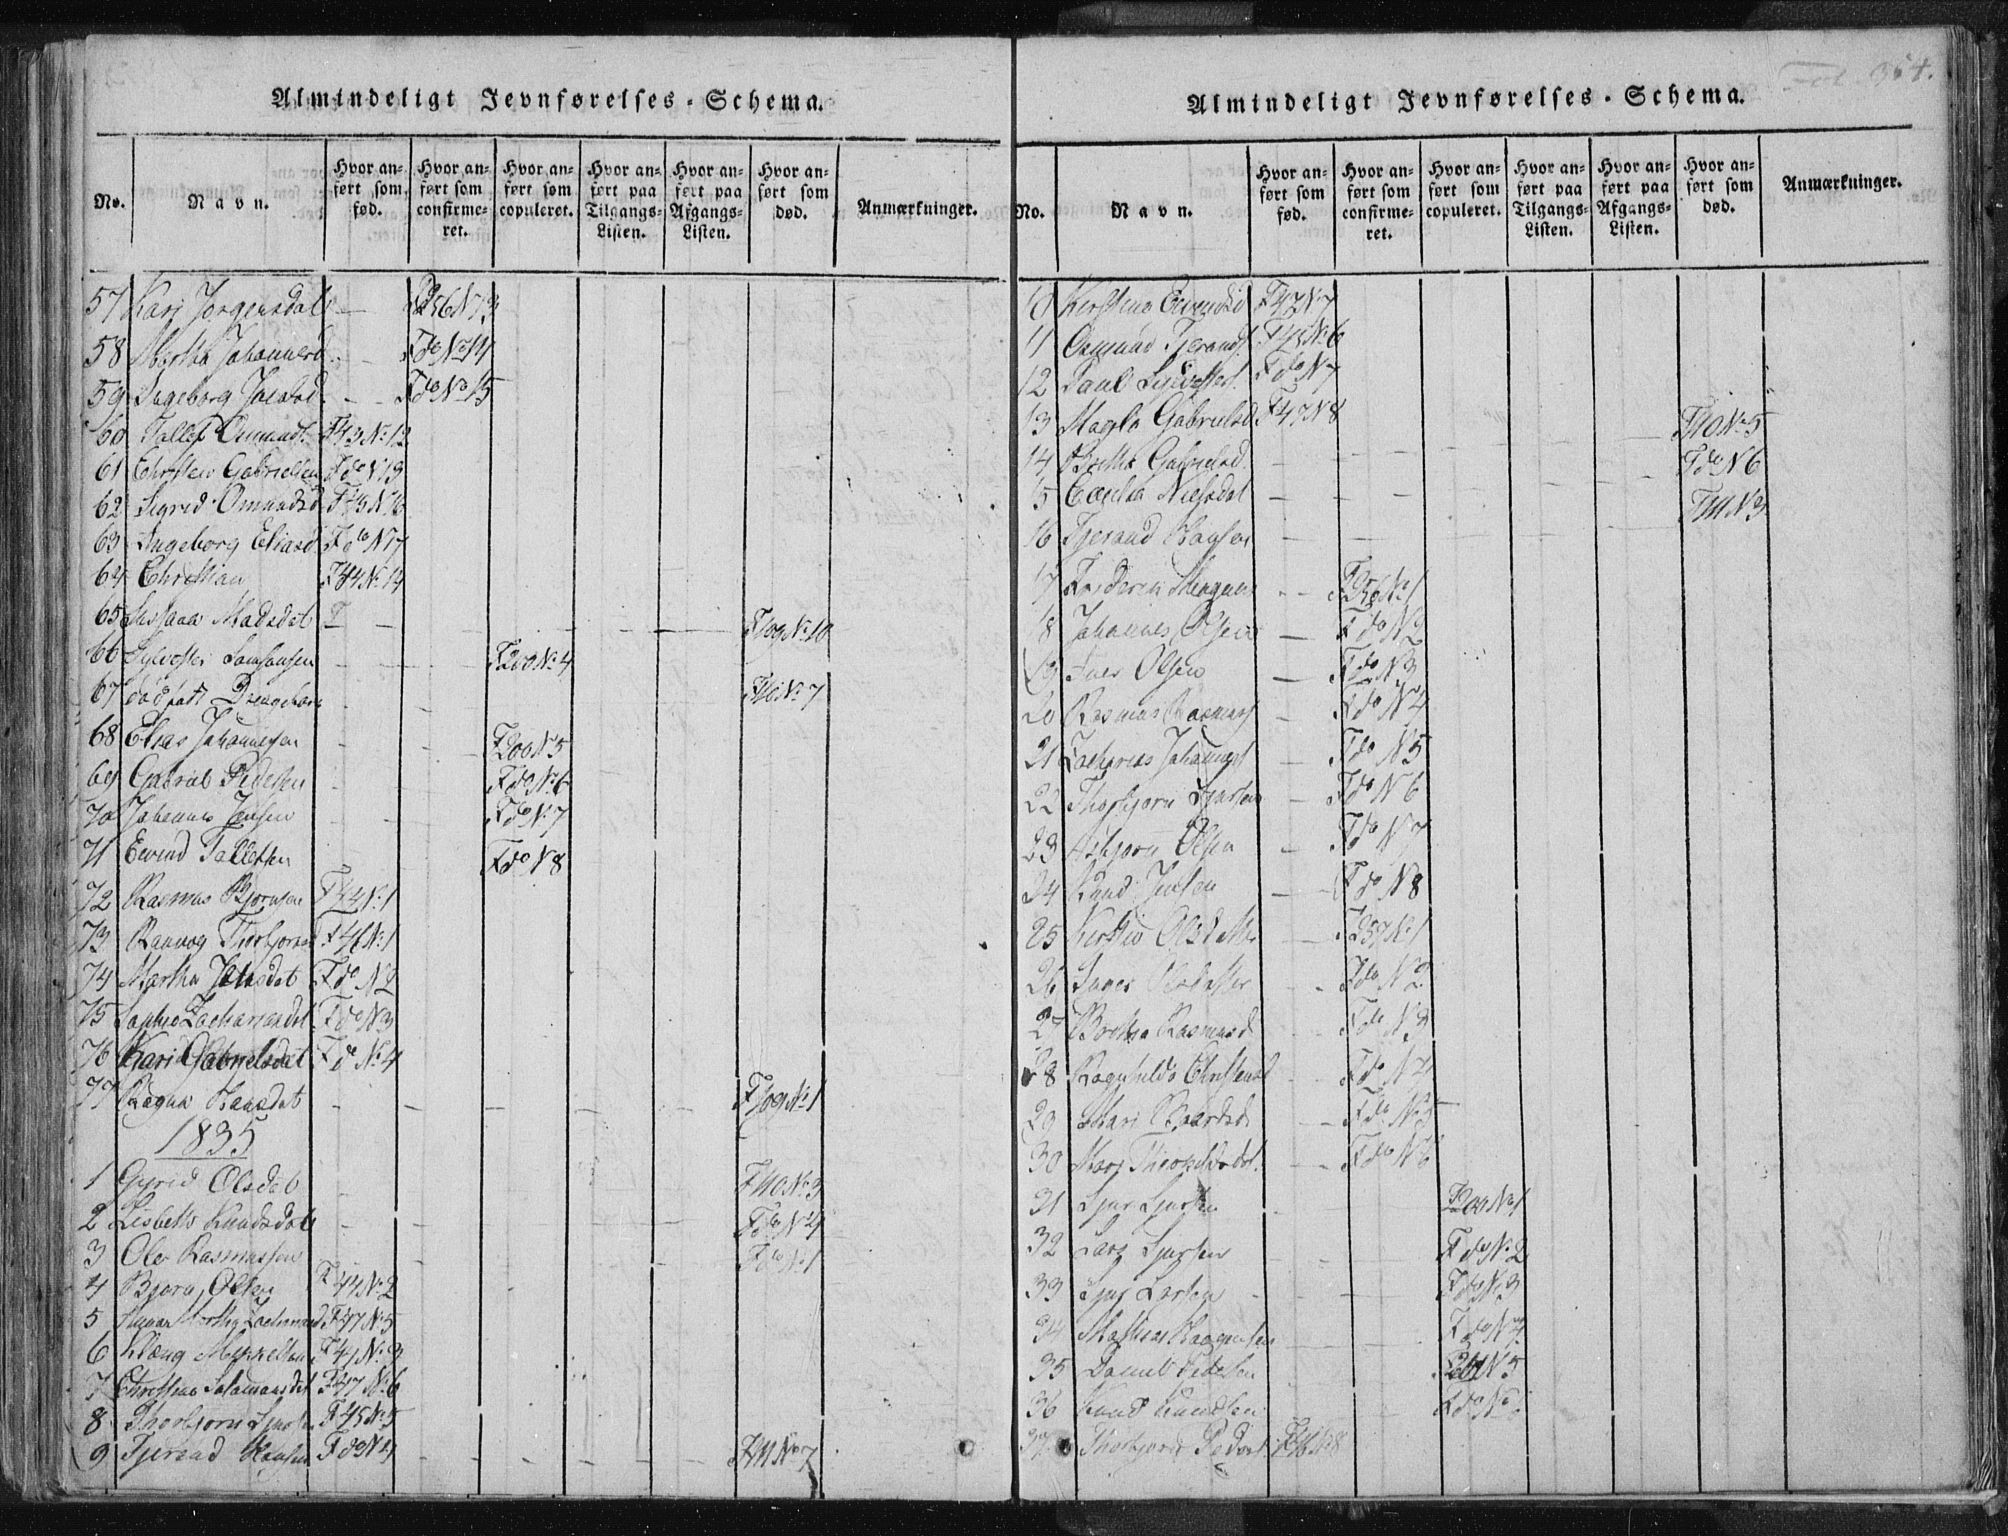 Almindeligt Jevnførelses-Schema.
No. Navn. Hvor anført som fød. Hvor anført som confirmeret. Hvor anført som copuleret. Hvor anført paa Tilgangs-Listen. Hvor anført paa Afgangs-Listen. Hvor anført som død. Anmærkninger.
57 Kari Jørgensdat — N 13
58 Martha Johannesd. - - F do No 14
59 Ingeborg - - F do No 15
60 Tallef Omunds. F 43 No 12
61 Christen Gabrielsen F do N 13
62 Sigrid Omundsd F 45 N 16
63 Ingeborg Eliasd F do N 17
64 Christian F 44 No 14
65 Susana Madsdat - F 109 No 10
66 Sylvester Samsonsen - - F 200 No 4
67 dødfødt Drengebarn - - F 110 No 7
68 Elias Johannesen - - F 200 N 5
69 Gabriel Pedersen - F do No 6
70 Johannes Jensen - F do No 7
71 Eivind Tallefsen F do N 8
72 Rasmus Bjørnsen F 44 No 1
73 Ranvog Thorbjørnsd F 46 No 1
74 Martha Jonasdat F do N 2
75 Sophie Zachariasdat F do N 3
76 Kari Gabrielsdat F do No 4
77 Ragna Hansdat - - - - - F 109 No 1
1835
1 Gyrid Olsdat - F 110 No 3
2 Lisbeth Knudsdat - - - - - F do N 4
3 Ole Rasmussen F do No 1
4 Bjørn Olsen F 44 No 2
5 Martha Zachariasd F 47 No 5
6 Klæng Mikkelsen F 41 No 3
7 Christine Salamonsdat F 47 No 6
8 Thorbjørn Sjursen F 45 No 5
9 Tjerand Hansen F do N 4 - - - - F 111 No 7
Fol 354.
Almindeligt Jevnførelses-Schema.
No. Navn. Hvor anført som fød. Hvor anført som confirmeret. Hvor anført som copuleret. Hvor anført paa Tilgangs-Listen. Hvor anført paa Afgangs-Listen. Hvor anført som død. Anmærkninger.
10 Kirstine Eivindsd F 47 N 7
11 Osmund Tjerands. F 45 No 6
12 Paul Sylvesters. F do N 7
13 Magla Gabrielsd F 47 N 8
14 Brita Gabrielsd. - - - - - F 110 No 5
15 Cecilia Nielsdat - - - - - F do N 6
16 Tjerand Hansen - - - - - F 111 N 3
17 Frederik - - No 1
18 Johannes Olsen — F do No 2
19 Iver Olsen — F do N 3
20 Rasmus Rasmuss — F do No 4
21 Zacharias Johannes F do N 5
22 Thorbjørn Sjursen — F do N 6
23 Asbjørn Olsen — F do N 7
24 Knud Jensen — F do N 8
25 Kirstie F 257 No 1
26 F do N 2
27 Bertha Rasmusd F do N 3
28 Ragnhilda Christensd F do N 4
29 Mari Baardsd - F do N 5
30 Mari - - F do N 6
31 Sjur Sjursen F 200 No 1
32 Lars Sjursen F do No 2
33 Sjur Larsen F do N 3
34 Mathias Haagensen F do N 4
35 Daniel Pedersen F 201 N 5
36 Knud Knudsen F do No 6
37 Thorbjørn Peders. F 46 No 8